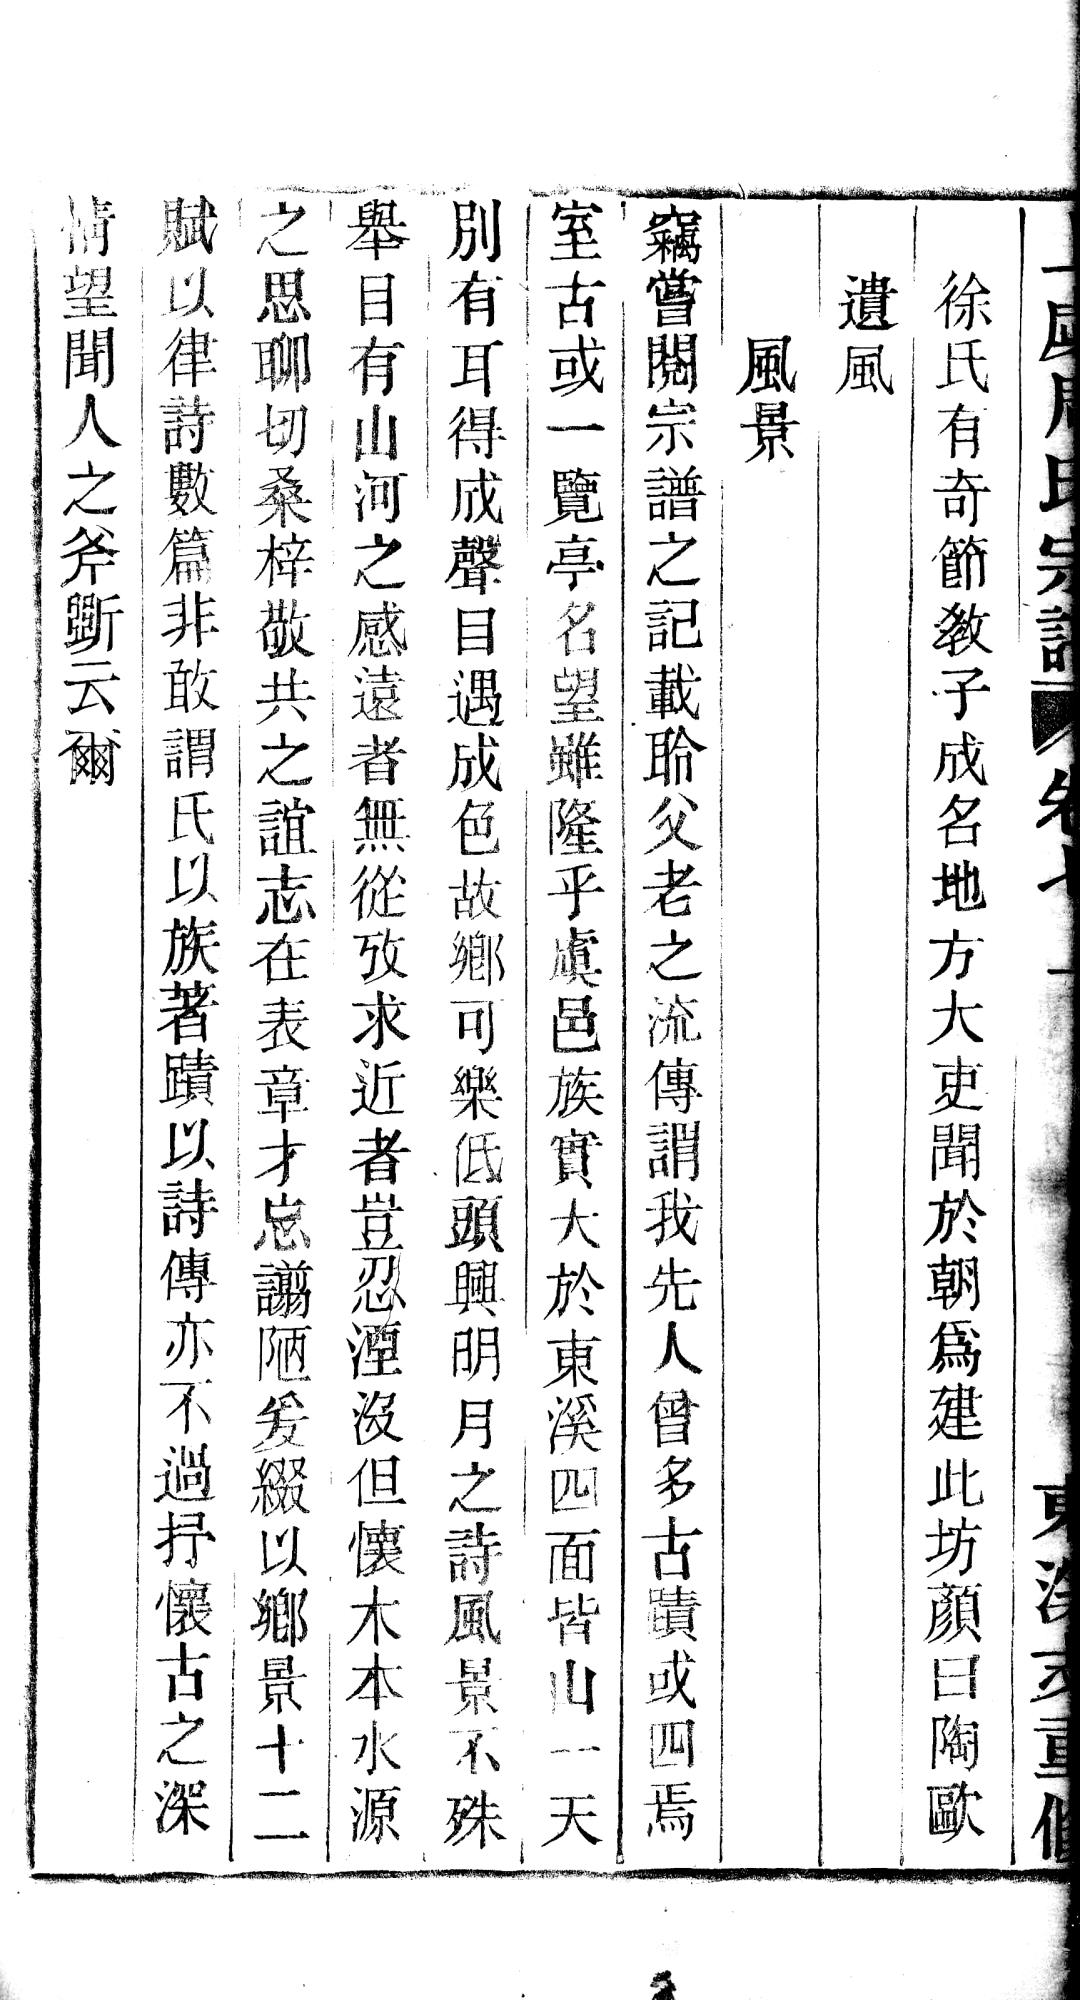 周氏宗譜 卷七 東溪支重修
徐氏有奇節教子成名地方大吏聞於朝爲建此坊顏曰陶歐
遺風
風景
竊嘗閱宗譜之記載聆父老之流傳謂我先人曾多古蹟或四焉
室古或一覽亭名望雖隆乎虞邑族實大於東溪四面皆山一天
別有耳得成聲目遇成色故鄉可樂低頭興明月之詩風景不殊
舉目有山河之感遠者無從攷求近者豈忍湮沒但懷木本水源
之思聊切桑梓敬共之誼志在表章才忘譾陋爰綴以鄉景十二
賦以律詩數篇非敢謂氏以族著蹟以詩傳亦不過抒懷古之深
情望聞人之斧斲云爾